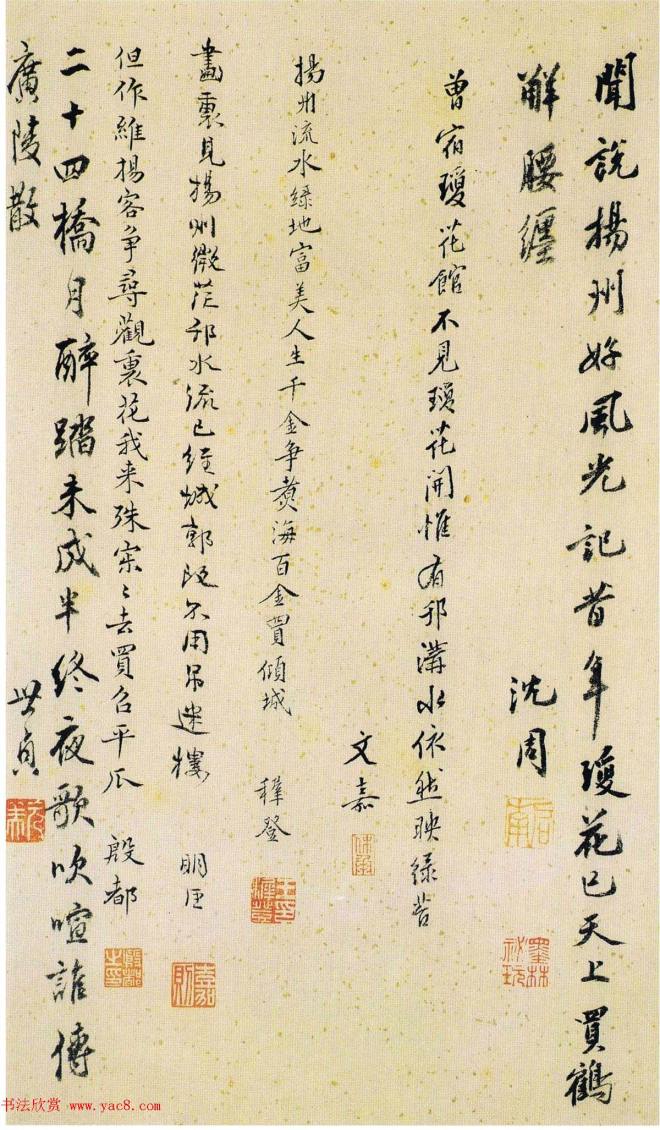 聞說揚州好風光記昔年瓊花已天上買鶴
解腰纏
沈周
啟南
墨林祕玩
曾宿瓊花館不見瓊花開惟有邗溝水依然映綠苔
文嘉
休承
揚州流水綠地富美人生千金爭煑海百金買傾城
穉登
王穉登印
畫裏見揚州微茫邗水流已經城郭改不用吊迷樓
明臣
嘉則
但作維揚客爭尋觀裏花我来殊寂〻去買召平瓜
殷都
殷都之印
二十四橋月醉踏未成半終夜歌吹喧誰傳
廣陵散
世貞
元美
书法欣赏 www.yac8.com